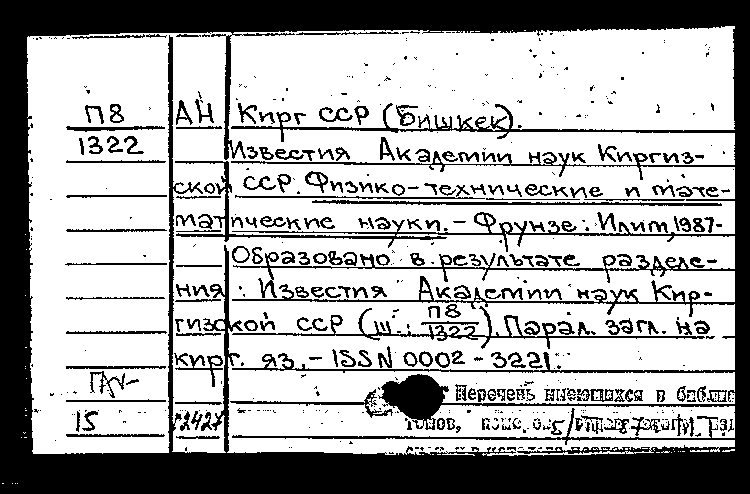 П8 АН Кирг ССР (Бишкек).
1322 Известия Академии наук Киргиз-
ской ССР. Физико-технические и мате-
матические науки. - Фрунзе: Илим, 1987-
Образовано в результате разделе-
ния: Известия Академии наук Кир-
гизской ССР (ш.: П8/1322). Парал. загл. на
кирг. яз. - ISSN 0002-3221.
Перечень имеющихся в библио
15 томов,